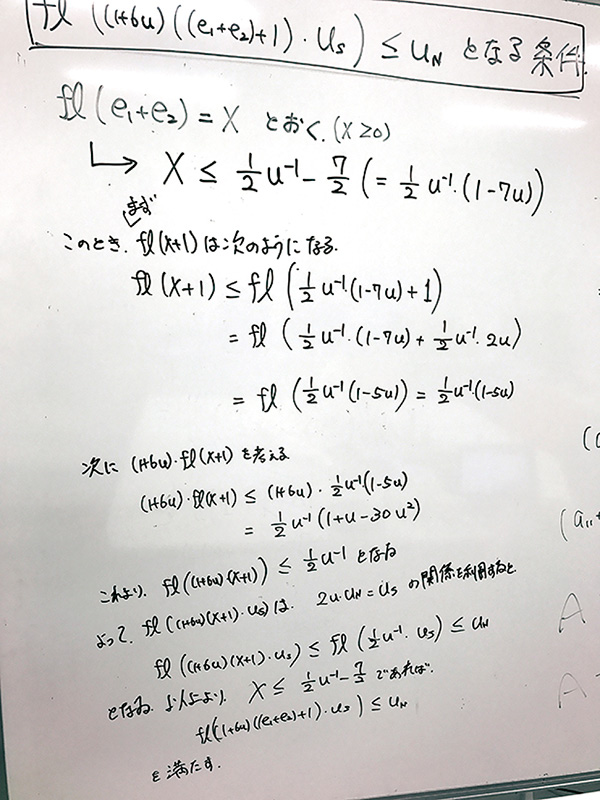 fl((1+6u)((e₁+e₂)+1)・u_S) ≤ u_N となる条件.
fl(e₁+e₂) = X とおく.(X≥0)
↳ X ≤ 1/2 u⁻¹ - 7/2 (= 1/2 u⁻¹・(1-7u))
まず
このとき. fl(X+1) は次のようになる.
fl(X+1) ≤ fl(1/2 u⁻¹(1-7u)+1)
= fl(1/2 u⁻¹・(1-7u) + 1/2 u⁻¹・2u)
= fl(1/2 u⁻¹(1-5u)) = 1/2 u⁻¹(1-5u)
次に (1+6u)・fl(X+1) を考える
(1+6u)・fl(X+1) ≤ (1+6u)・1/2 u⁻¹(1-5u)
= 1/2 u⁻¹(1+u-30u²)
これより. fl((1+6u)(X+1)) ≤ 1/2 u⁻¹ となる
よって. fl((1+6u)(X+1)・u_S) は. 2u・u_N = u_S の関係を利用すると.
fl((1+6u)(X+1)・u_S) ≤ fl(1/2 u⁻¹・u_S) ≤ u_N
となる. 以上より. X ≤ 1/2 u⁻¹ - 7/2 であれば.
fl((1+6u)((e₁+e₂)+1)・u_S) ≤ u_N
を満たす.
(a₁₁+
A
A